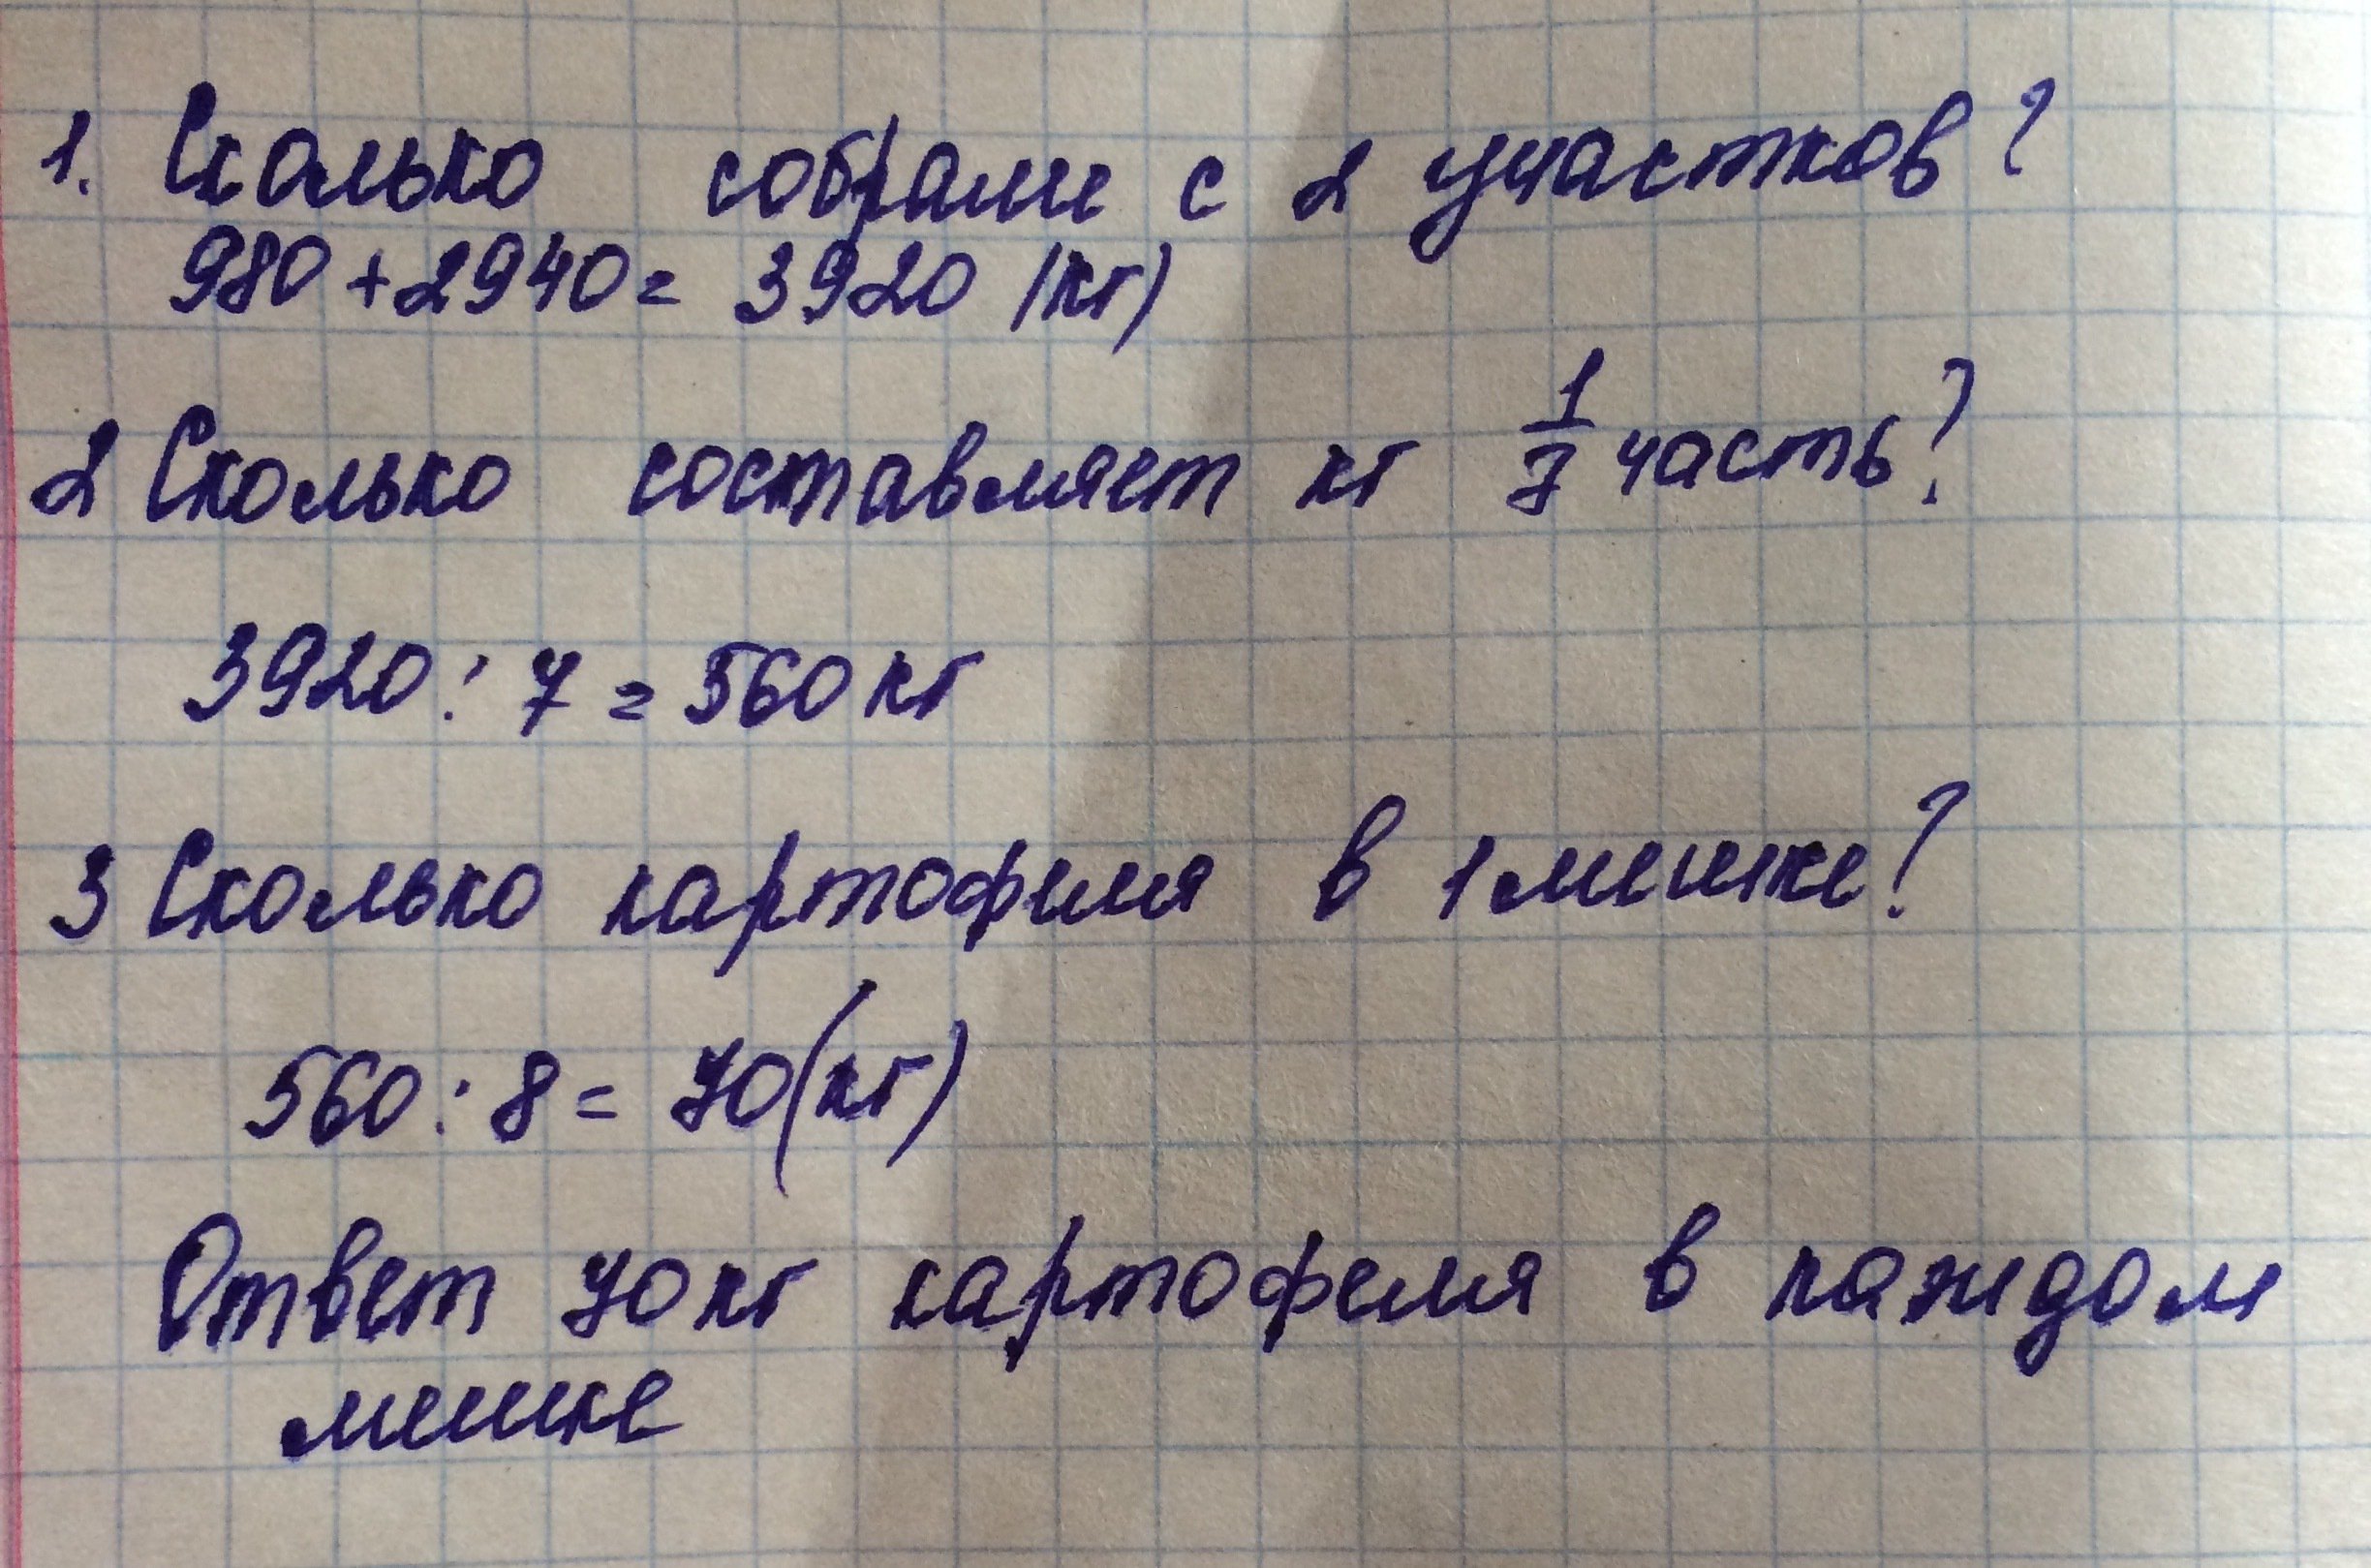 1. Сколько собрали с 2 участков?
980 + 2940 = 3920 (кг)
2 Сколько составляет кг 1/7 часть?
3920 : 7 = 560 кг
3 Сколько картофеля в 1 мешке?
560 : 8 = 70 (кг)
Ответ 70 кг картофеля в каждом
мешке